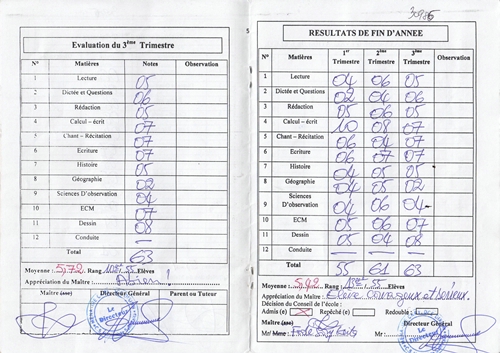 Evaluation du 3ème Trimestre
N° Matières Notes Observation
1 Lecture 05
2 Dictée et Questions 06
3 Rédaction 05
4 Calcul – écrit 07
5 Chant – Récitation 07
6 Ecriture 07
7 Histoire 05
8 Géographie 02
9 Sciences D'observation 04
10 ECM 07
11 Dessin 08
12 Conduite —
Total 63
Moyenne : 5,72 Rang Elèves
Appréciation du Maître :
Maître (sse) Directeur Général Parent ou Tuteur
Le Directeur
5
RESULTATS DE FIN D'ANNEE
N° Matières 1er Trimestre 2ème Trimestre 3ème Trimestre Observation
1 Lecture 04 06 05
2 Dictée et Questions 02 04 06
3 Rédaction 05 06 05
4 Calcul – écrit 10 08 07
5 Chant – Récitation 06 04 07
6 Ecriture 06 07 07
7 Histoire 04 05 05
8 Géographie 04 05 02
9 Sciences D'observation 04 06 04
10 ECM
11 Dessin
12 Conduite — — —
Total 55 61 63
Moyenne : Rang Elèves
Appréciation du Maître : Elève Courageux et sérieux.
Décision du Conseil d'école :
Admis (e) Repêché (e) Redouble
Maître (sse) Directeur Général
Mme Mr